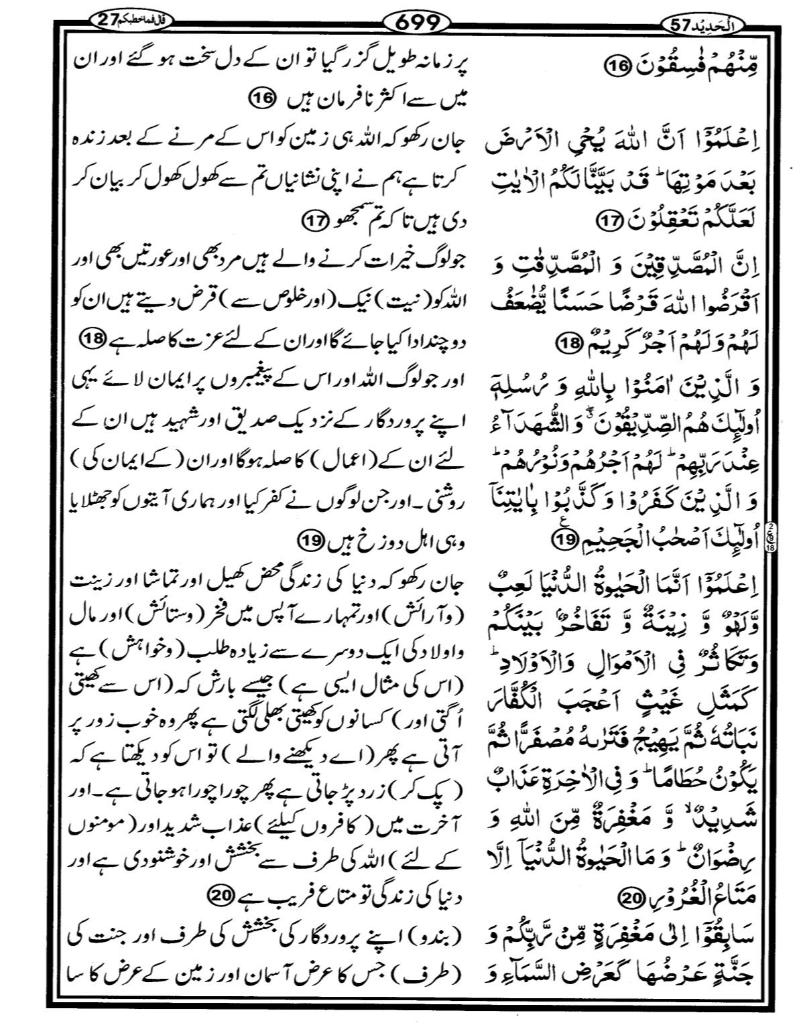 اَلْحَدِيْد 57
699
قال فماخطبكم 27
مِّنْهُمْ فٰسِقُوْنَ ⑯
اِعْلَمُوْٓا اَنَّ اللّٰهَ يُحْيِ الْاَرْضَ
بَعْدَ مَوْتِهَا ؕ قَدْ بَيَّنَّا لَكُمُ الْاٰيٰتِ
لَعَلَّكُمْ تَعْقِلُوْنَ ⑰
اِنَّ الْمُصَّدِّقِيْنَ وَ الْمُصَّدِّقٰتِ وَ
اَقْرَضُوا اللّٰهَ قَرْضًا حَسَنًا يُّضٰعَفُ
لَهُمْ وَلَهُمْ اَجْرٌ كَرِيْمٌ ⑱
وَ الَّذِيْنَ اٰمَنُوْا بِاللّٰهِ وَ رُسُلِهٖٓ
اُولٰٓئِكَ هُمُ الصِّدِّيْقُوْنَ ۖۗ وَ الشُّهَدَآءُ
عِنْدَ رَبِّهِمْ ؕ لَهُمْ اَجْرُهُمْ وَنُوْرُهُمْ ؕ
وَ الَّذِيْنَ كَفَرُوْا وَ كَذَّبُوْا بِاٰيٰتِنَآ
اُولٰٓئِكَ اَصْحٰبُ الْجَحِيْمِ ⑲ ع
اِعْلَمُوْٓا اَنَّمَا الْحَيٰوةُ الدُّنْيَا لَعِبٌ
وَّلَهْوٌ وَّ زِيْنَةٌ وَّ تَفَاخُرٌۢ بَيْنَكُمْ
وَتَكَاثُرٌ فِي الْاَمْوَالِ وَالْاَوْلَادِ ؕ
كَمَثَلِ غَيْثٍ اَعْجَبَ الْكُفَّارَ
نَبَاتُهٗ ثُمَّ يَهِيْجُ فَتَرٰىهُ مُصْفَرًّا ثُمَّ
يَكُوْنُ حُطَامًا ؕ وَ فِي الْاٰخِرَةِ عَذَابٌ
شَدِيْدٌ ۙ وَّ مَغْفِرَةٌ مِّنَ اللّٰهِ وَ
رِضْوَانٌ ؕ وَ مَا الْحَيٰوةُ الدُّنْيَآ اِلَّا
مَتَاعُ الْغُرُوْرِ ⑳
سَابِقُوْٓا اِلٰى مَغْفِرَةٍ مِّنْ رَّبِّكُمْ وَ
جَنَّةٍ عَرْضُهَا كَعَرْضِ السَّمَآءِ وَ
پر زمانہ طویل گزر گیا تو ان کے دل سخت ہو گئے اور ان
میں سے اکثر نافرمان ہیں ⑯
جان رکھو کہ اللہ ہی زمین کو اس کے مرنے کے بعد زندہ
کرتا ہے ہم نے اپنی نشانیاں تم سے کھول کھول کر بیان کر
دی ہیں تاکہ تم سمجھو ⑰
جو لوگ خیرات کرنے والے ہیں مرد بھی اور عورتیں بھی اور
اللہ کو (نیت) نیک (اور خلوص سے) قرض دیتے ہیں ان کو
دو چند ادا کیا جائے گا اور ان کے لئے عزت کا صلہ ہے ⑱
اور جو لوگ اللہ اور اس کے پیغمبروں پر ایمان لائے یہی
اپنے پروردگار کے نزدیک صدیق اور شہید ہیں ان کے
لئے ان کے (اعمال) کا صلہ ہوگا اور ان (کے ایمان کی)
روشنی ۔ اور جن لوگوں نے کفر کیا اور ہماری آیتوں کو جھٹلایا
وہی اہل دوزخ ہیں ⑲
جان رکھو کہ دنیا کی زندگی محض کھیل اور تماشا اور زینت
(وآرائش) اور تمہارے آپس میں فخر (وستائش) اور مال
و اولاد کی ایک دوسرے سے زیادہ طلب (وخواہش) ہے
(اس کی مثال ایسی ہے) جیسے بارش کہ (اس سے کھیتی
اُگتی اور) کسانوں کو کھیتی بھلی لگتی ہے پھر وہ خوب زور پر
آتی ہے پھر (اے دیکھنے والے) تو اس کو دیکھتا ہے کہ
(پک کر) زرد پڑ جاتی ہے پھر چورا چورا ہو جاتی ہے ۔ اور
آخرت میں (کافروں کیلئے) عذاب شدید اور (مومنوں
کے لئے) اللہ کی طرف سے بخشش اور خوشنودی ہے اور
دنیا کی زندگی تو متاع فریب ہے ⑳
(بندو) اپنے پروردگار کی بخشش کی طرف اور جنت کی
(طرف) جس کا عرض آسمان اور زمین کے عرض کا سا